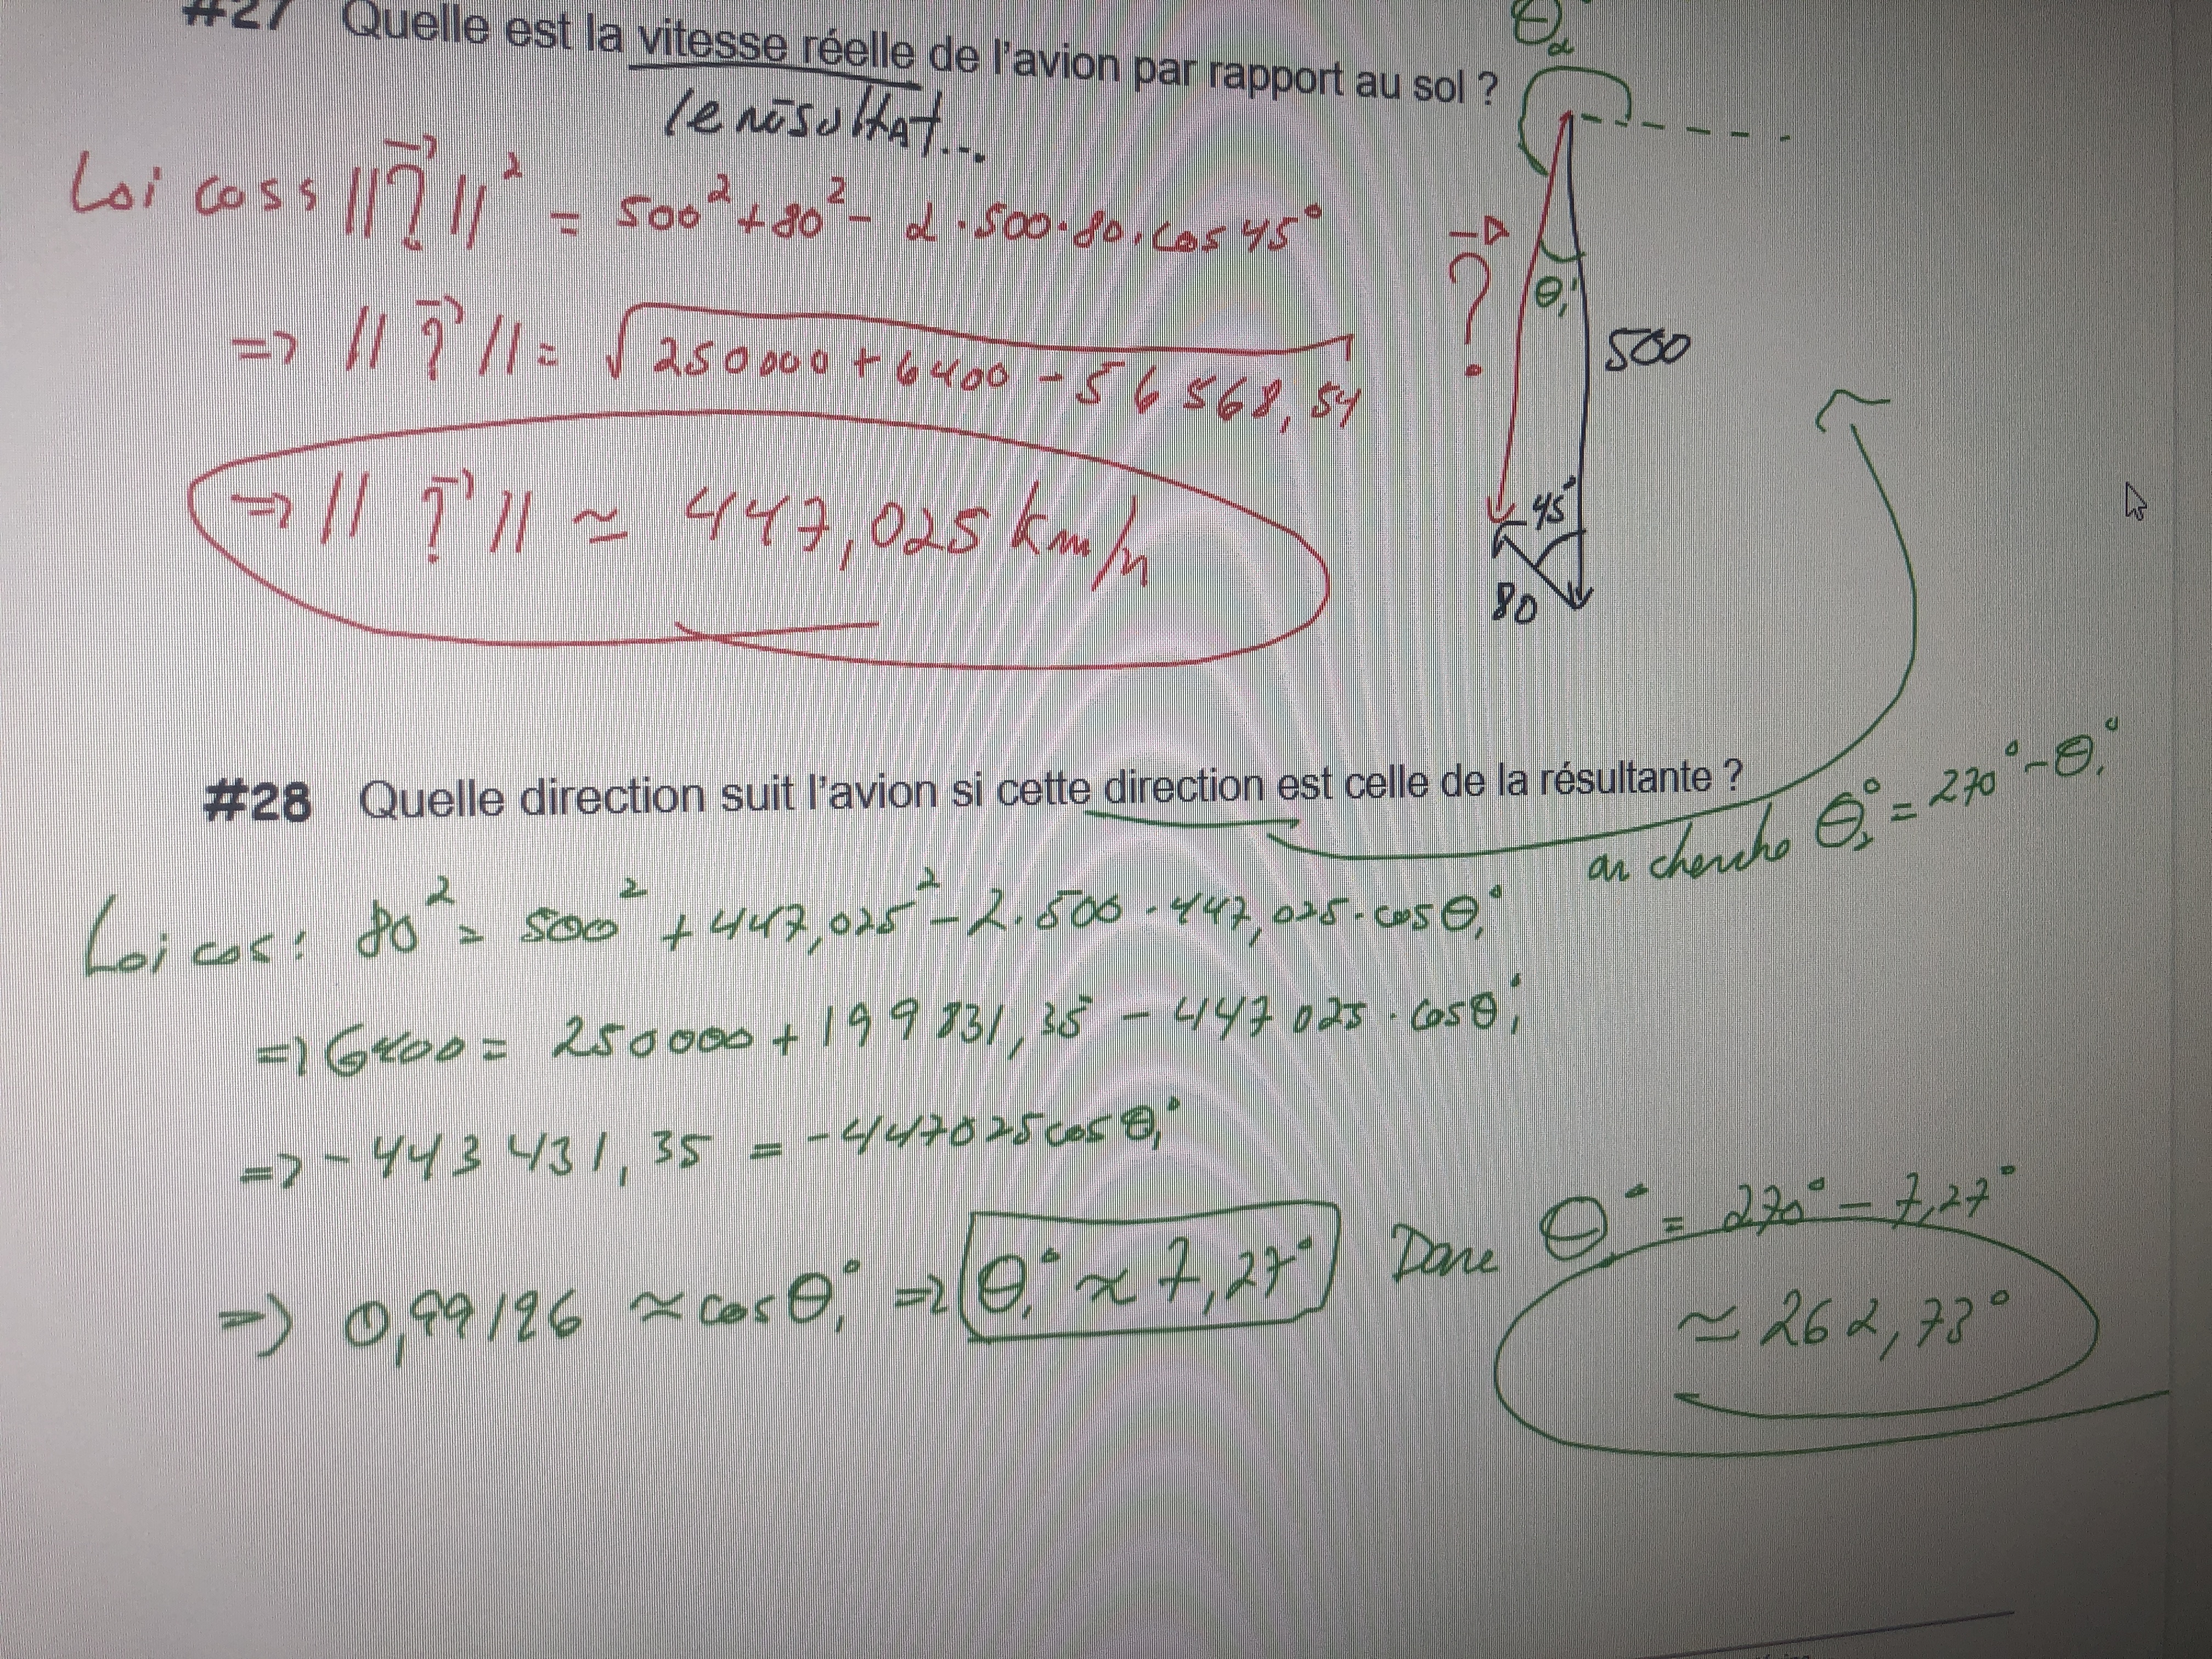 #27 Quelle est la vitesse réelle de l'avion par rapport au sol ?
le résultat...
Loi coss ||?⃗||² = 500² + 80² - 2·500·80·cos 45°
=> ||?⃗|| = √250000 + 6400 - 56568,54
=> ||?⃗|| ≃ 447,025 km/h
θ₂
?⃗
θ₁
500
45°
80
#28 Quelle direction suit l'avion si cette direction est celle de la résultante ?
on cherche θ₂° = 270° - θ₁°
Loi cos : 80² = 500² + 447,025² - 2·500·447,025·cos θ₁°
=> 6400 = 250000 + 199831,35 - 447025·cos θ₁°
=> -443431,35 = -447025 cos θ₁°
=> 0,99196 ≃ cos θ₁° => θ₁° ≈ 7,27° Donc θ° = 270° - 7,27°
≃ 262,73°